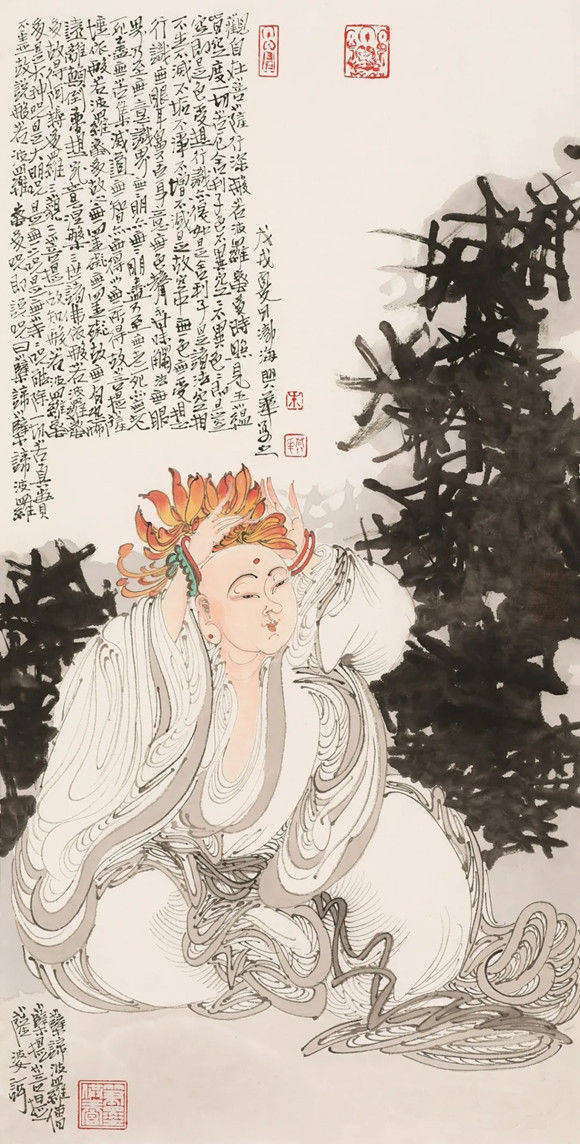 觀自在菩薩行深般若波羅蜜多時照見五蘊
皆空度一切苦厄舍利子色不異空空不異色色即是
空空即是色受想行識亦復如是舍利子是諸法空相
不生不滅不垢不淨不增不減是故空中無色無受想
行識無眼耳鼻舌身意無色聲香味觸法無眼
界乃至無意識界無無明亦無無明盡乃至無老死亦無老
死盡無苦集滅道無智亦無得以無所得故菩提薩
埵依般若波羅蜜多故心無罣礙無罣礙故無有恐怖
遠離顛倒夢想究竟涅槃三世諸佛依般若波羅蜜
多故得阿耨多羅三藐三菩提故知般若波羅蜜
多是大神咒是大明咒是無上咒是無等等咒能除一切苦真實
不虛故說般若波羅蜜多咒即說咒曰揭諦揭諦波羅
揭諦波羅僧
揭諦菩提
薩婆訶
戊戌夏月渤海興華寫之
朱